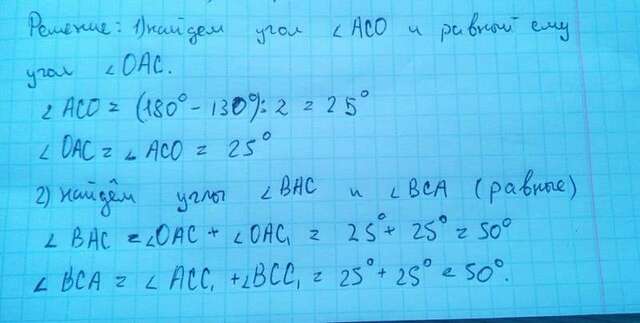 Решение: 1) найдем угол ∠ACO и равный ему
угол ∠OAC.
∠ACO = (180° - 130°) : 2 = 25°
∠OAC = ∠ACO = 25°
2) Найдём углы ∠BAC и ∠BCA (равные)
∠BAC = ∠OAC + ∠OAC₁ = 25° + 25° = 50°
∠BCA = ∠ACC₁ + ∠BCC₁ = 25° + 25° = 50°.